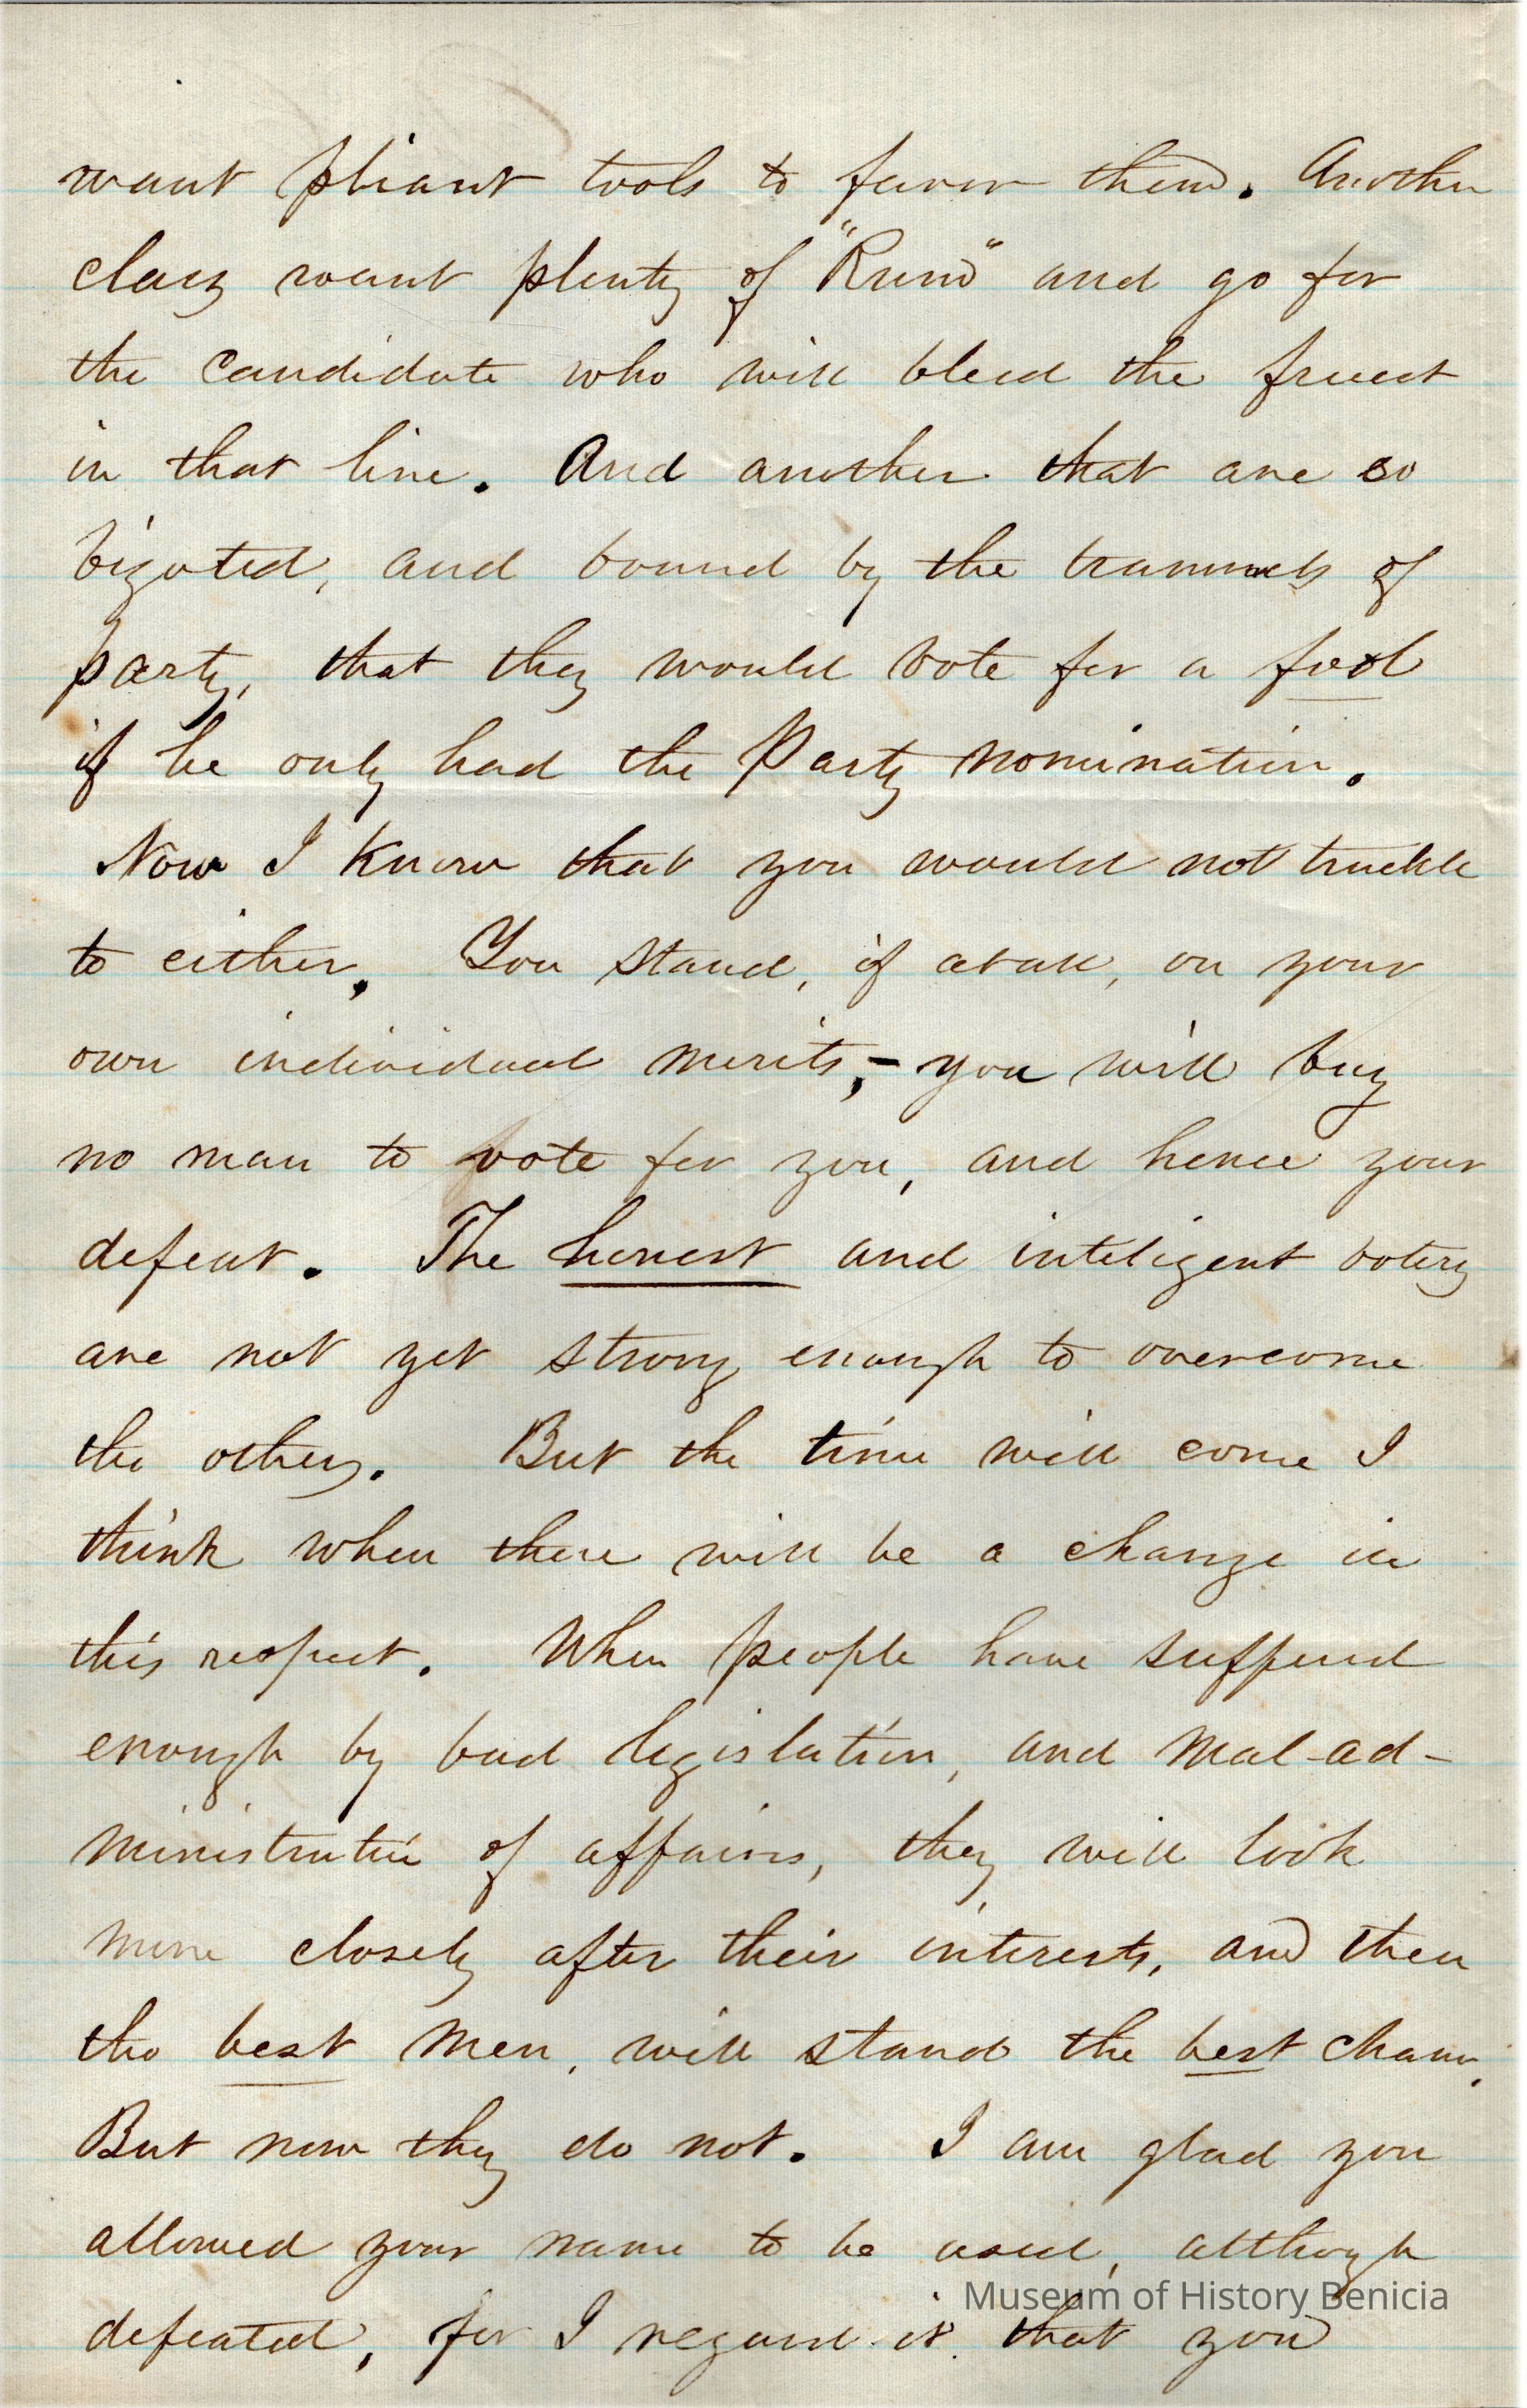 want pliant tools to favor them. Another
class want plenty of "Rum" and go for
the candidate who will bleed the freest
in that line. And another that are so
bigoted, and bound by the trammels of
party, that they would vote for a fool
if he only had the Party nomination.
Now I know that you would not truckle
to either. You stand, if at all, on your
own individual merits,- you will buy
no man to vote for you, and hence your
defeat. The honest and inteligent voters
are not yet strong enough to overcome
the others. But the time will come I
think when there will be a change in
this respect. When people have suffered
enough by bad legislation, and mal-ad-
ministration of affairs, they will look
more closely after their interests, and then
the best men, will stand the best chance.
But now they do not. I am glad you
allowed your name to be used, although
Museum of History Benicia
defeated, for I regard it that you